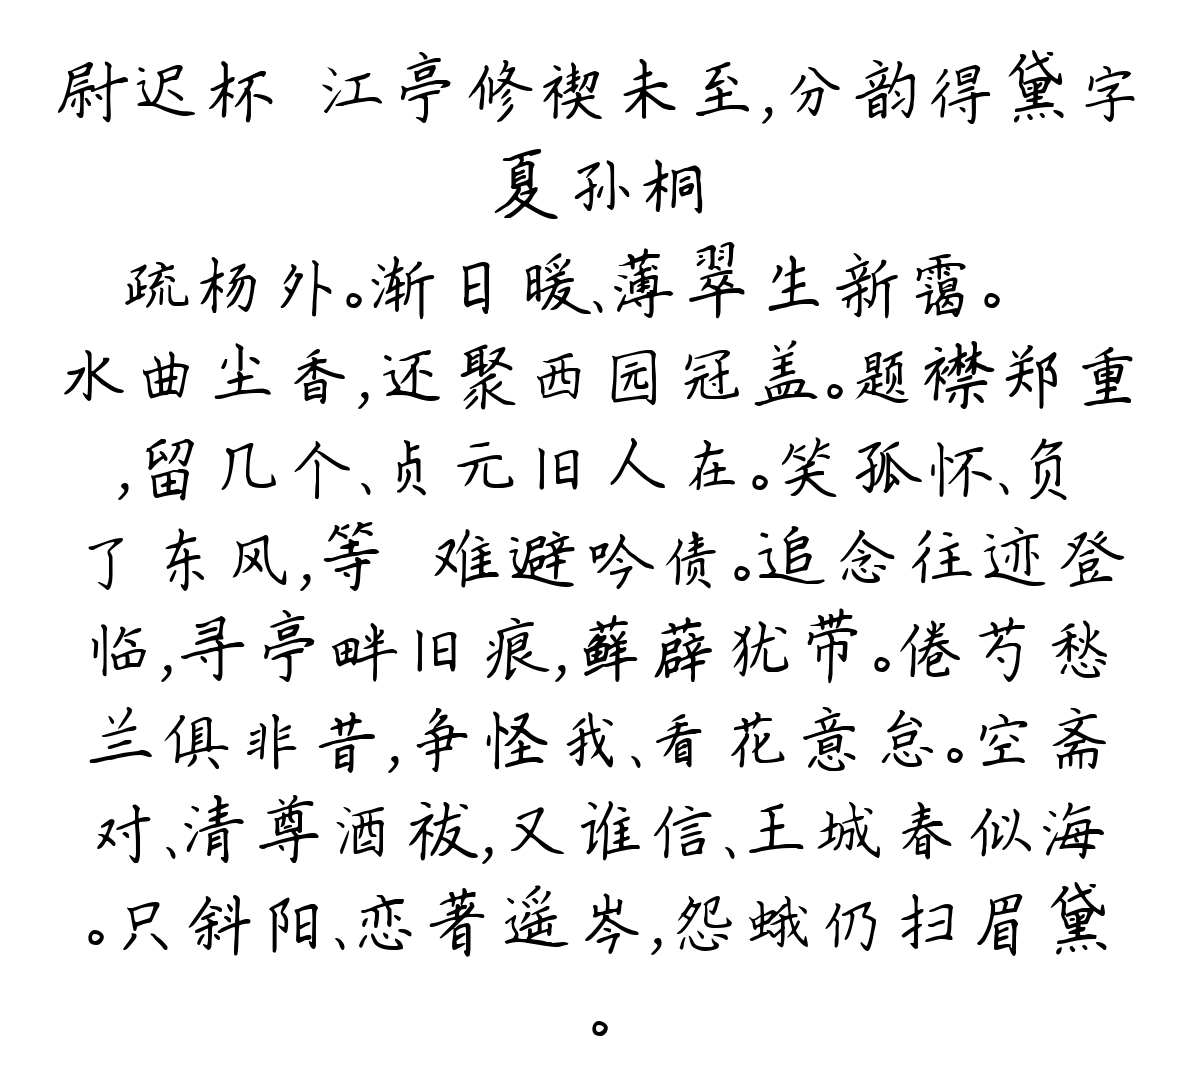 尉迟杯 江亭修禊未至,分韵得黛字
夏孙桐
疏杨外。渐日暖、薄翠生新霭。
水曲尘香,还聚西园冠盖。题襟郑重
,留几个、贞元旧人在。笑孤怀、负
了东风,等 难避吟债。追念往迹登
临,寻亭畔旧痕,藓薜犹带。倦芍愁
兰俱非昔,争怪我、看花意怠。空斋
对、清尊酒祓,又谁信、王城春似海
。只斜阳、恋著遥岑,怨蛾仍扫眉黛
。